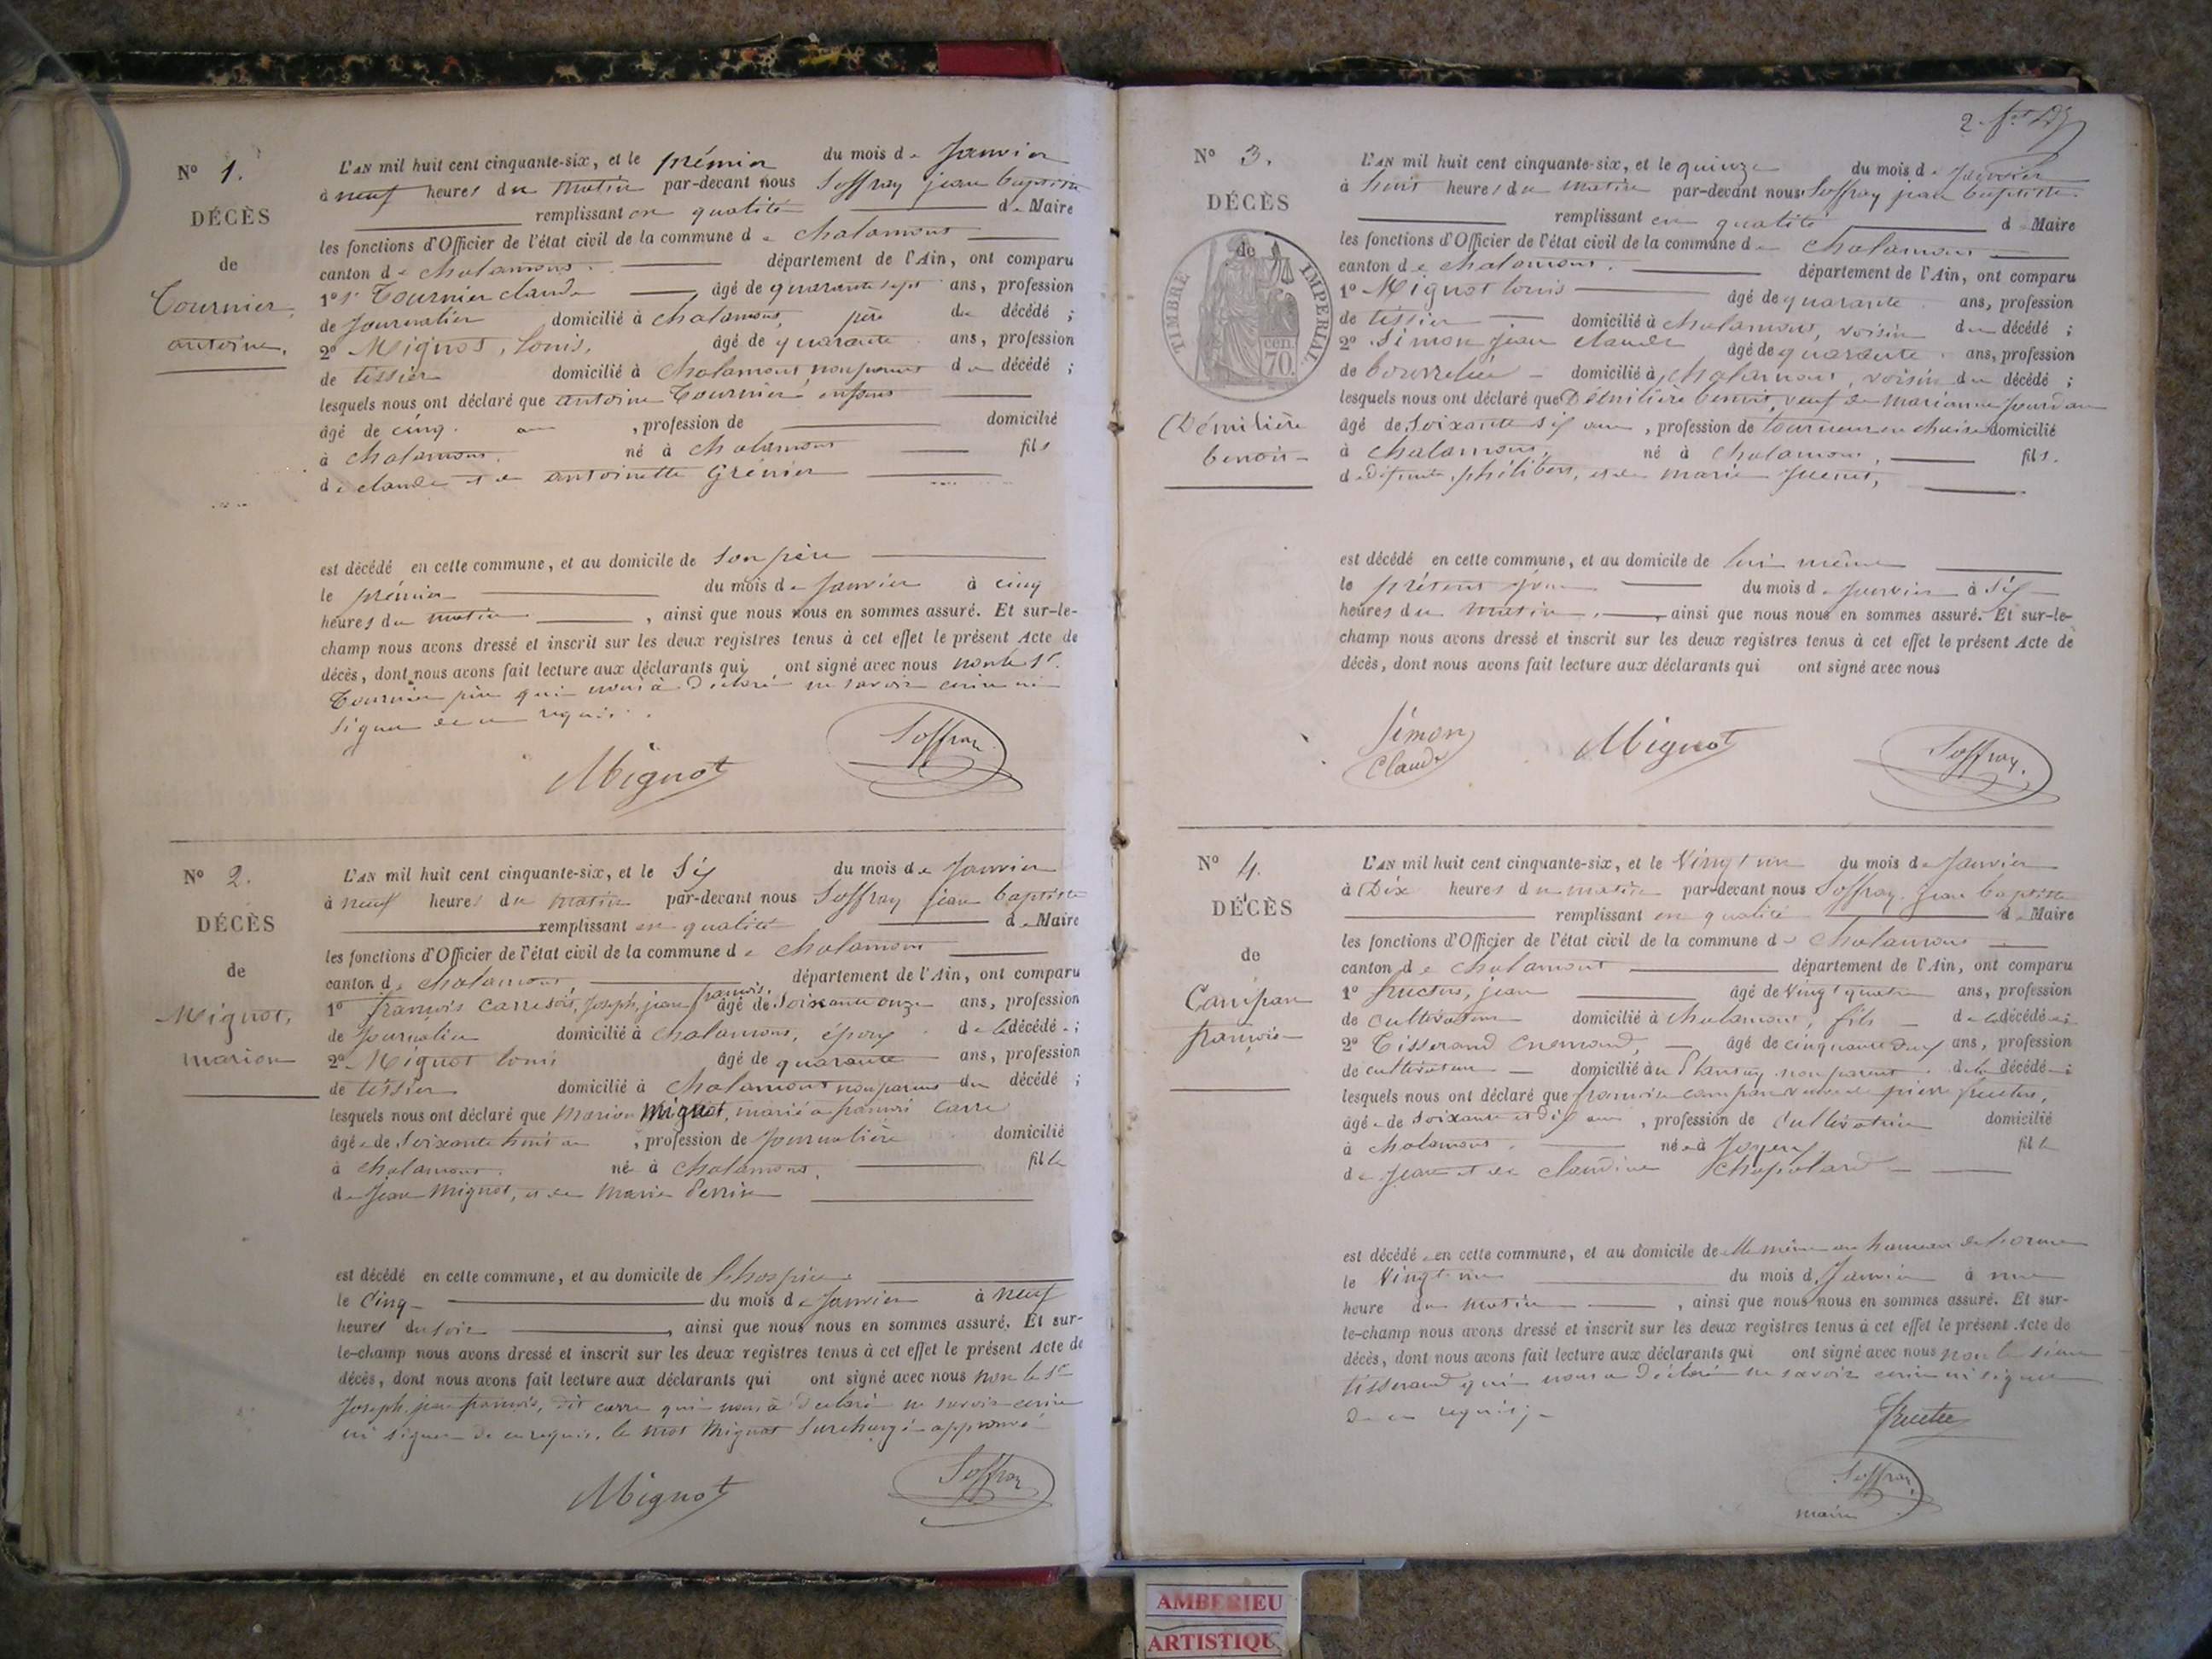 N° 1.
DÉCÈS
de
Tournier,
antoine.
L'AN mil huit cent cinquante-six, et le prémier du mois de Janvier
à neuf heures du matin par-devant nous Soffray jean baptiste
remplissant en qualité de Maire
les fonctions d'Officier de l'état civil de la commune de chalamont
canton de chalamont. département de l'Ain, ont comparu
1° Sr Tournier claude âgé de quarante sept ans, profession
de Journalier domicilié à chalamont, père du décédé ;
2° Mignot, Louis, âgé de quarante ans, profession
de tissier domicilié à chalamont non parent du décédé ;
lesquels nous ont déclaré que antoine Tournier enfant
âgé de cinq an , profession de domicilié
à chalamont. né à chalamont fils
de claude et de antoinette Grénier
est décédé en cette commune, et au domicile de son père
le prémier du mois de Janvier à cinq
heures du matin , ainsi que nous nous en sommes assuré. Et sur-le-
champ nous avons dressé et inscrit sur les deux registres tenus à cet effet le présent Acte de
décès, dont nous avons fait lecture aux déclarants qui ont signé avec nous non le Sr.
Tournier père qui nous à Déclaré ne savoir écrire ni
signer de ce requis.
Mignot Soffray
N° 2.
DÉCÈS
de
Mignot,
marion
L'AN mil huit cent cinquante-six, et le Six du mois de Janvier
à neuf heures du matin par-devant nous Soffray jean baptiste
remplissant en qualité de Maire
les fonctions d'Officier de l'état civil de la commune de chalamont
canton de chalamont département de l'Ain, ont comparu
1° françois carre dit, Joseph, jean françois, âgé de Soixante onze ans, profession
de Journalier domicilié à chalamont, époux de la décédée ;
2° Mignot louis âgé de quarante ans, profession
de tissier domicilié à chalamont non parent du décédé ;
lesquels nous ont déclaré que Marion Mignot, marié a françois carre
âgée de Soixante huit an , profession de Journalière domicilié
à chalamont. née à chalamont, fille
de Jean Mignot, et de Marie Perrin
est décédé en cette commune, et au domicile de l'hospice
le Cinq du mois de Janvier à neuf
heures du soir , ainsi que nous nous en sommes assuré. Et sur-
le-champ nous avons dressé et inscrit sur les deux registres tenus à cet effet le présent Acte de
décès, dont nous avons fait lecture aux déclarants qui ont signé avec nous non le Sr
Joseph, jean françois, dit carre qui nous à Déclaré ne savoir écrire
ni signer de ce requis. le mot Mignot surchargé approuvé
Mignot Soffray
N° 3.
DÉCÈS
de
TIMBRE IMPERIAL
cen
70.
Démilière
benoit
L'AN mil huit cent cinquante-six, et le quinze du mois de Janvier
à huit heures du matin par-devant nous Soffray jean baptiste
remplissant en qualité de Maire
les fonctions d'Officier de l'état civil de la commune de chalamont
canton de chalamont. département de l'Ain, ont comparu
1° Mignot louis âgé de quarante ans, profession
de tissier domicilié à chalamont, voisin du décédé ;
2° Simon jean claude âgé de quarante ans, profession
de bourrelier domicilié à chalamont, voisin du décédé ;
lesquels nous ont déclaré que Démilière benoit, veuf de marianne Jourdan
âgé de Soixante six ans , profession de tourneur en chaise domicilié
à chalamont, né à chalamont, fils.
de Défunts, philibert, et de marie
est décédé en cette commune, et au domicile de lui même
le présent jour du mois de Janvier à Six
heures du matin, ainsi que nous nous en sommes assuré. Et sur-le-
champ nous avons dressé et inscrit sur les deux registres tenus à cet effet le présent Acte de
décès, dont nous avons fait lecture aux déclarants qui ont signé avec nous
Simon Claude Mignot Soffray
N° 4.
DÉCÈS
de
Campan
françoise
L'AN mil huit cent cinquante-six, et le Vingt un du mois de Janvier
à Dix heures du matin par-devant nous Soffray Jean baptiste
remplissant en qualité de Maire
les fonctions d'Officier de l'état civil de la commune de chalamont
canton de chalamont département de l'Ain, ont comparu
1° fructus, jean âgé de Vingt quatre ans, profession
de cultivateur domicilié à chalamont, fils de la décédée ;
2° Tisserand Enemond, âgé de cinquante ans, profession
de cultivateur domicilié au Plantay non parent de la décédée ;
lesquels nous ont déclaré que françoise campan veuve de pierre fructus,
âgée de Soixante et dix ans , profession de Cultivatrice domicilié
à chalamont. née à Joyeux fille
de Jean et de Claudine Chapolard
est décédée en cette commune, et au domicile de elle même au hameau de
le Vingt un du mois de Janvier à une
heure du matin , ainsi que nous nous en sommes assuré. Et sur-
le-champ nous avons dressé et inscrit sur les deux registres tenus à cet effet le présent Acte de
décès, dont nous avons fait lecture aux déclarants qui ont signé avec nous non le sieur
tisserand qui nous a déclaré ne savoir écrire ni signer
de ce requis
Soffray
maire
AMBERIEU
ARTISTIQU